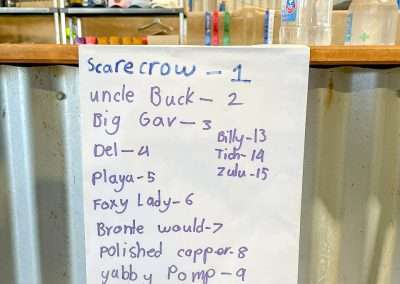 Scarecrow - 1
uncle Buck - 2
Big Gav - 3
Del - 4
Playa - 5
Foxy Lady - 6
Bronte would - 7
polished copper - 8
yabby Pomp - 9
Billy - 13
Tich - 14
Zulu - 15